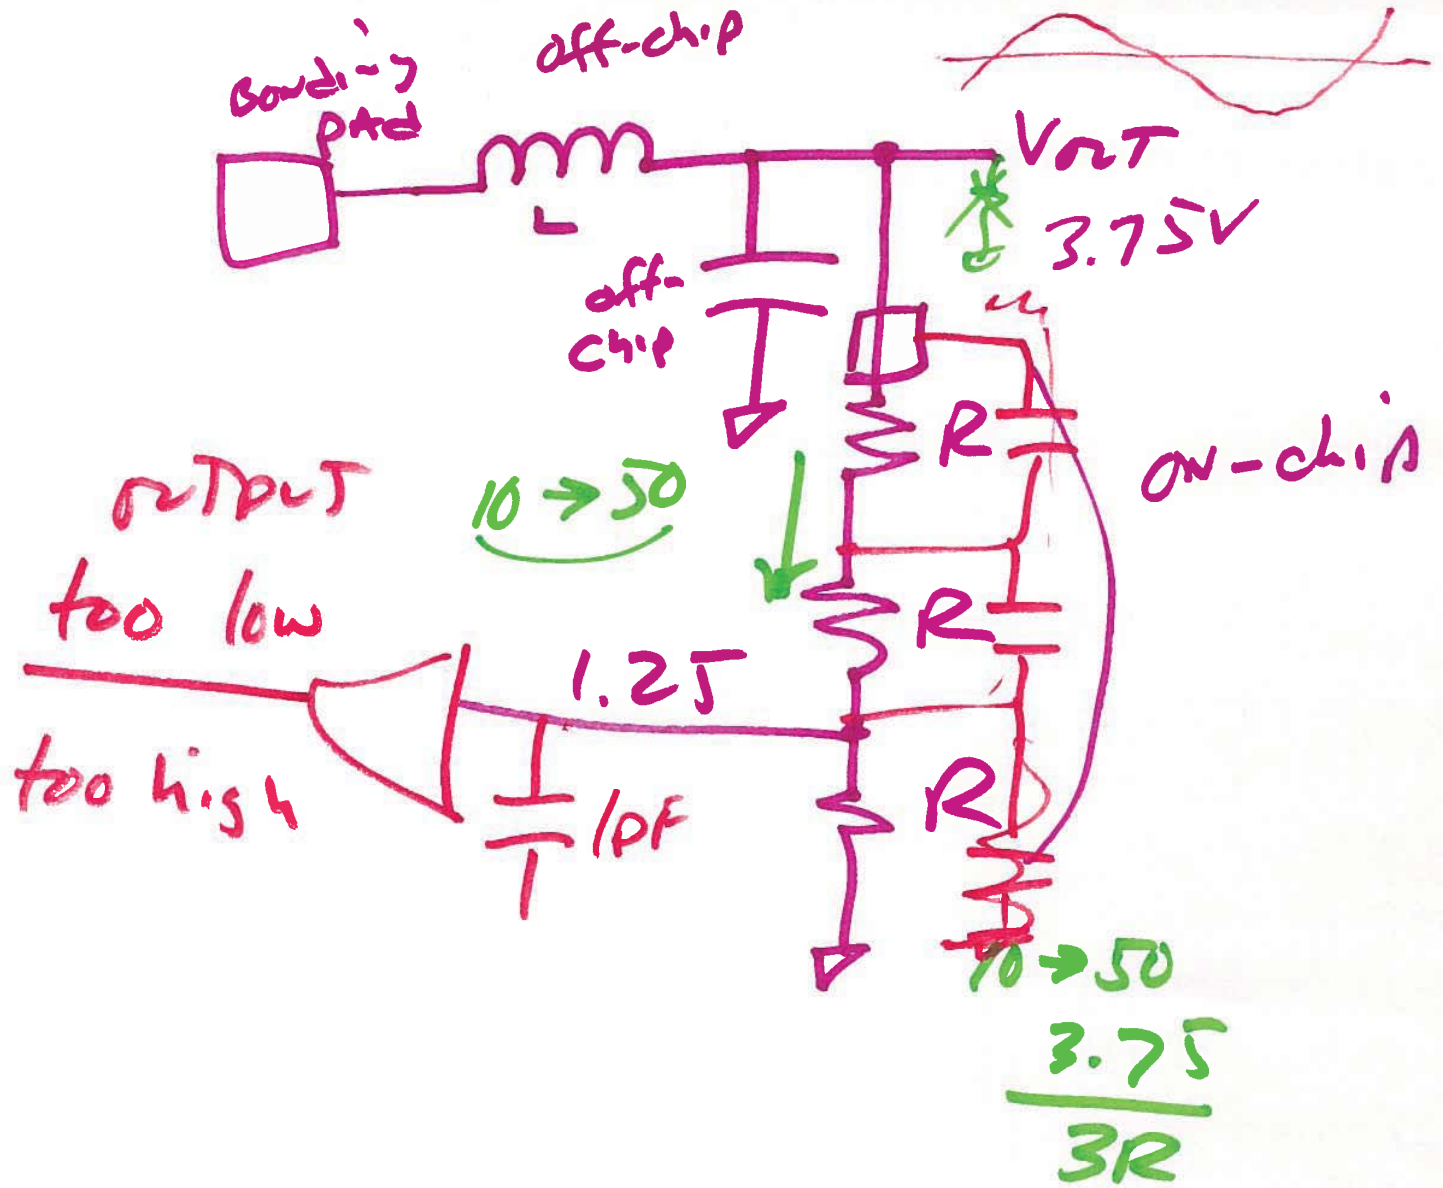 off-chip
Bonding
pad
L
VOUT
3.75V
off-
chip
R
on-chip
OUTPUT
10 → 50
too low
R
1.25
too high
R
1pF
10 → 50
3.75
3R